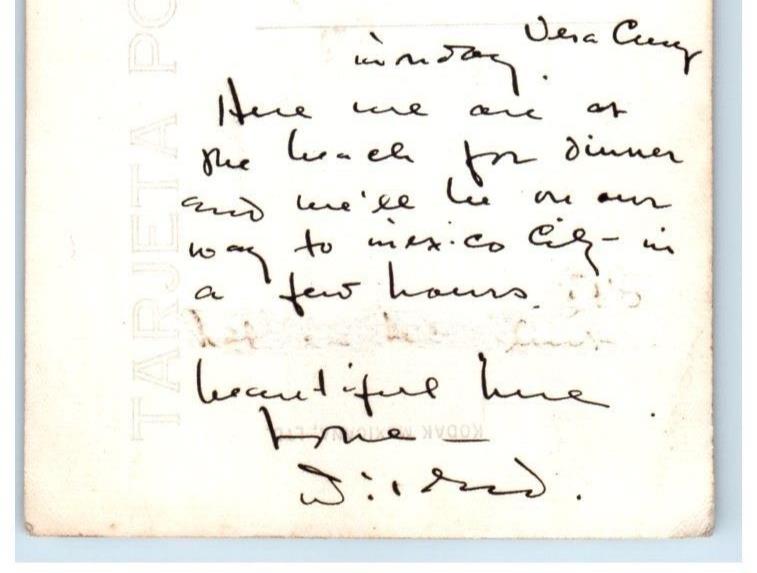 Vera Cruz
monday.
Here we are at
the beach for dinner
and we'll be on our
way to mexico City – in
a few hours.
beautiful here.
Love –
TARJETA PO
KODAK MEXICANA, LTD